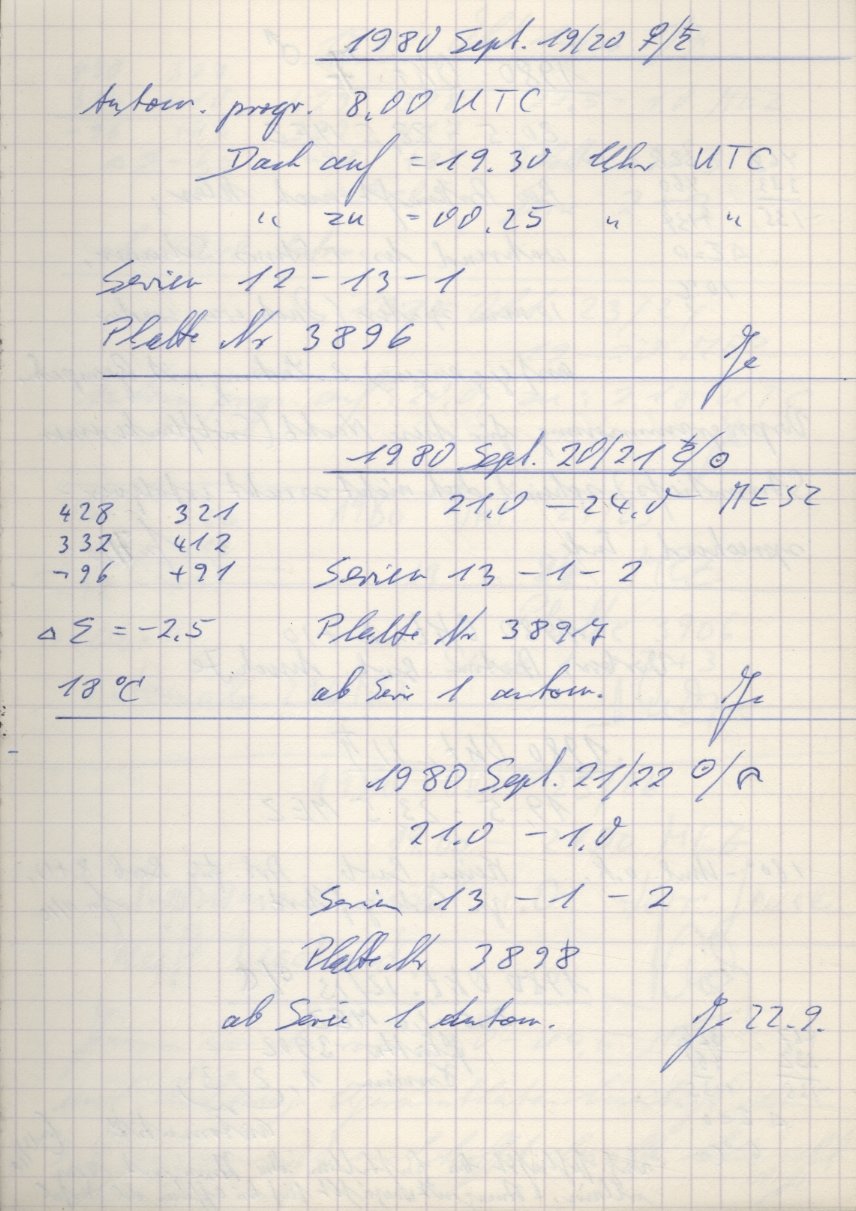 1980 Sept. 19/20 ♀/♄
Autom. progr. 8.00 UTC
Dach auf = 19.30 Uhr UTC
" zu = 00.25 " "
Serien 12 – 13 – 1
Platte Nr 3896 Je
1980 Sept. 20/21 ♄/☉
21.0 – 24.0 MESZ
428 321
332 412
-96 +91
Serien 13 – 1 – 2
Δ Σ = -2.5
Platte Nr 3897
18 °C
ab Serie 1 autom. Je
1980 Sept. 21/22 ☉/☾
21.0 – 1.0
Serien 13 – 1 – 2
Platte Nr 3898
ab Serie 1 autom. Je 22.9.